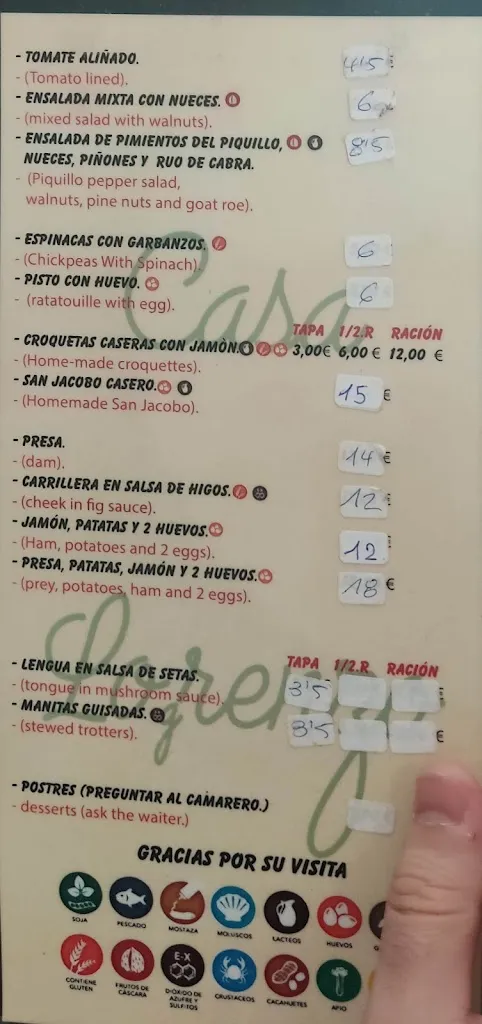 - TOMATE ALIÑADO. 4'5 €
- (Tomato lined).
- ENSALADA MIXTA CON NUECES. 6
- (mixed salad with walnuts).
- ENSALADA DE PIMIENTOS DEL PIQUILLO, 8'5
NUECES, PIÑONES Y RUO DE CABRA.
- (Piquillo pepper salad,
walnuts, pine nuts and goat roe).
- ESPINACAS CON GARBANZOS. 6
- (Chickpeas With Spinach).
- PISTO CON HUEVO. 6
- (ratatouille with egg).
Casa
TAPA 1/2.R RACIÓN
- CROQUETAS CASERAS CON JAMÒN. 3,00€ 6,00 € 12,00 €
- (Home-made croquettes).
- SAN JACOBO CASERO. 15 €
- (Homemade San Jacobo).
- PRESA. 14 €
- (dam).
- CARRILLERA EN SALSA DE HIGOS. 12
- (cheek in fig sauce).
- JAMÓN, PATATAS Y 2 HUEVOS. 12
- (Ham, potatoes and 2 eggs).
- PRESA, PATATAS, JAMÓN Y 2 HUEVOS. 18 €
- (prey, potatoes, ham and 2 eggs).
TAPA 1/2.R RACIÓN
- LENGUA EN SALSA DE SETAS. 3'5
- (tongue in mushroom sauce).
- MANITAS GUISADAS. 3'5 €
- (stewed trotters).
- POSTRES (PREGUNTAR AL CAMARERO.)
- desserts (ask the waiter.)
GRACIAS POR SU VISITA
SOJA PESCADO MOSTAZA MOLUSCOS LACTEOS HUEVOS
E-X
CONTIENE GLUTEN FRUTOS DE CÁSCARA DIÓXIDO DE AZUFRE Y SULFITOS CRUSTACEOS CACAHUETES APIO